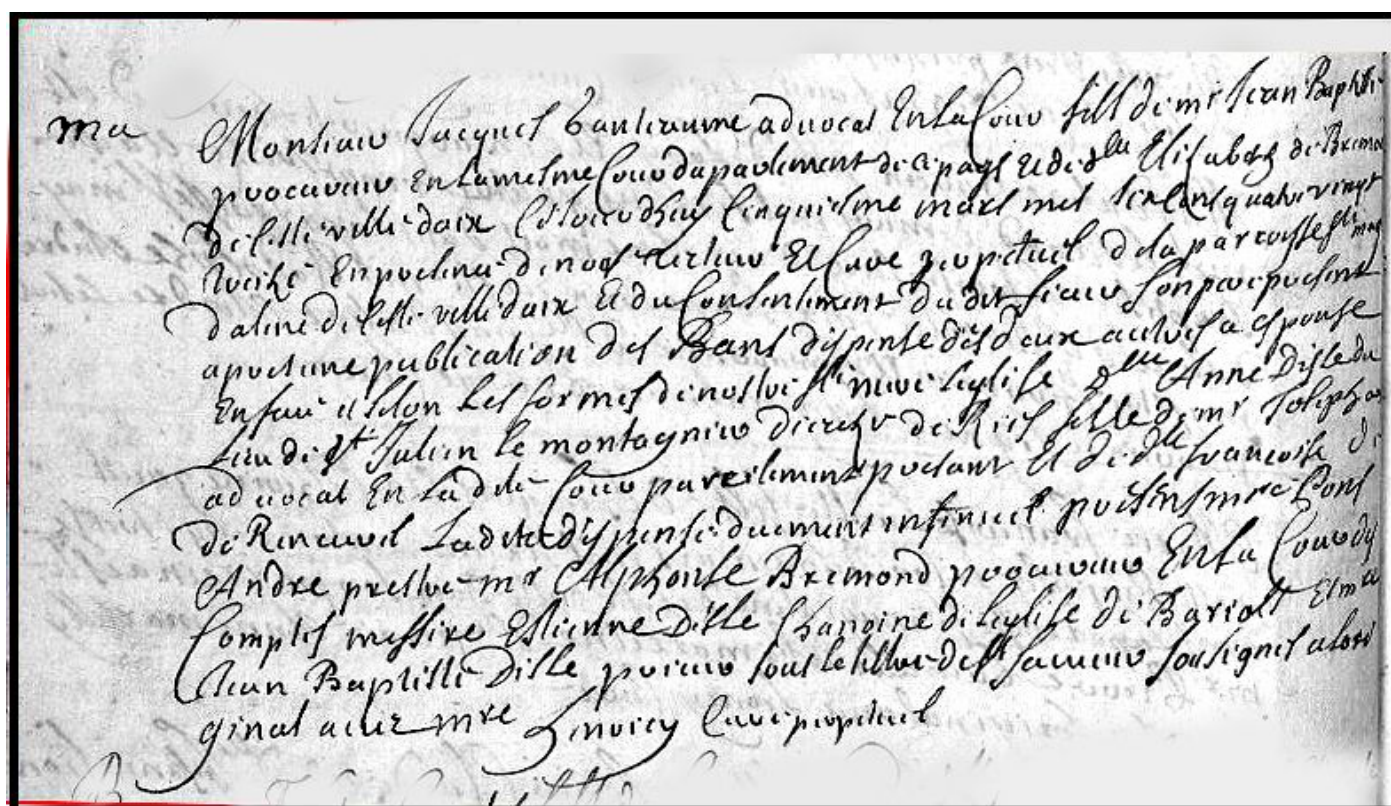 ma
Monsieur Jacques Ganteaume advocat En la Cour fils de mr Jean Baptiste
procureur En la mesme Cour du parlement de ce pays Et de dlle Elisabeth de Bremo
de cette ville daix Ce jourdhuy Cinquiesme mars mil six Cens quatre vingt
treize En presence de nous Curé perpetuel de la paroisse
dalene de cette ville daix Et du Consentement du dit sieur son pere present
apres une publication des Bans dispense des deux autres a espouse
En face et selon les formes de nostre ste mere Leglise dlle Anne Disle du
lieu de st Julien le montagnier de Ries fille de mr Joseph
advocat En la dite Cour pareillement present Et de dlle francoise
de Reneuvel La dite dispense duement insinuee presens mre Pons
André prestre mr Alphonse Bremond procureur En la Cour des
Comptes messire Estienne Disle Chanoine de leglise de Bariols Et mre
Jean Baptiste Disle prieur sous le titre de st sauveur sousignes a lori
ginal avec mre Curé perpetuel